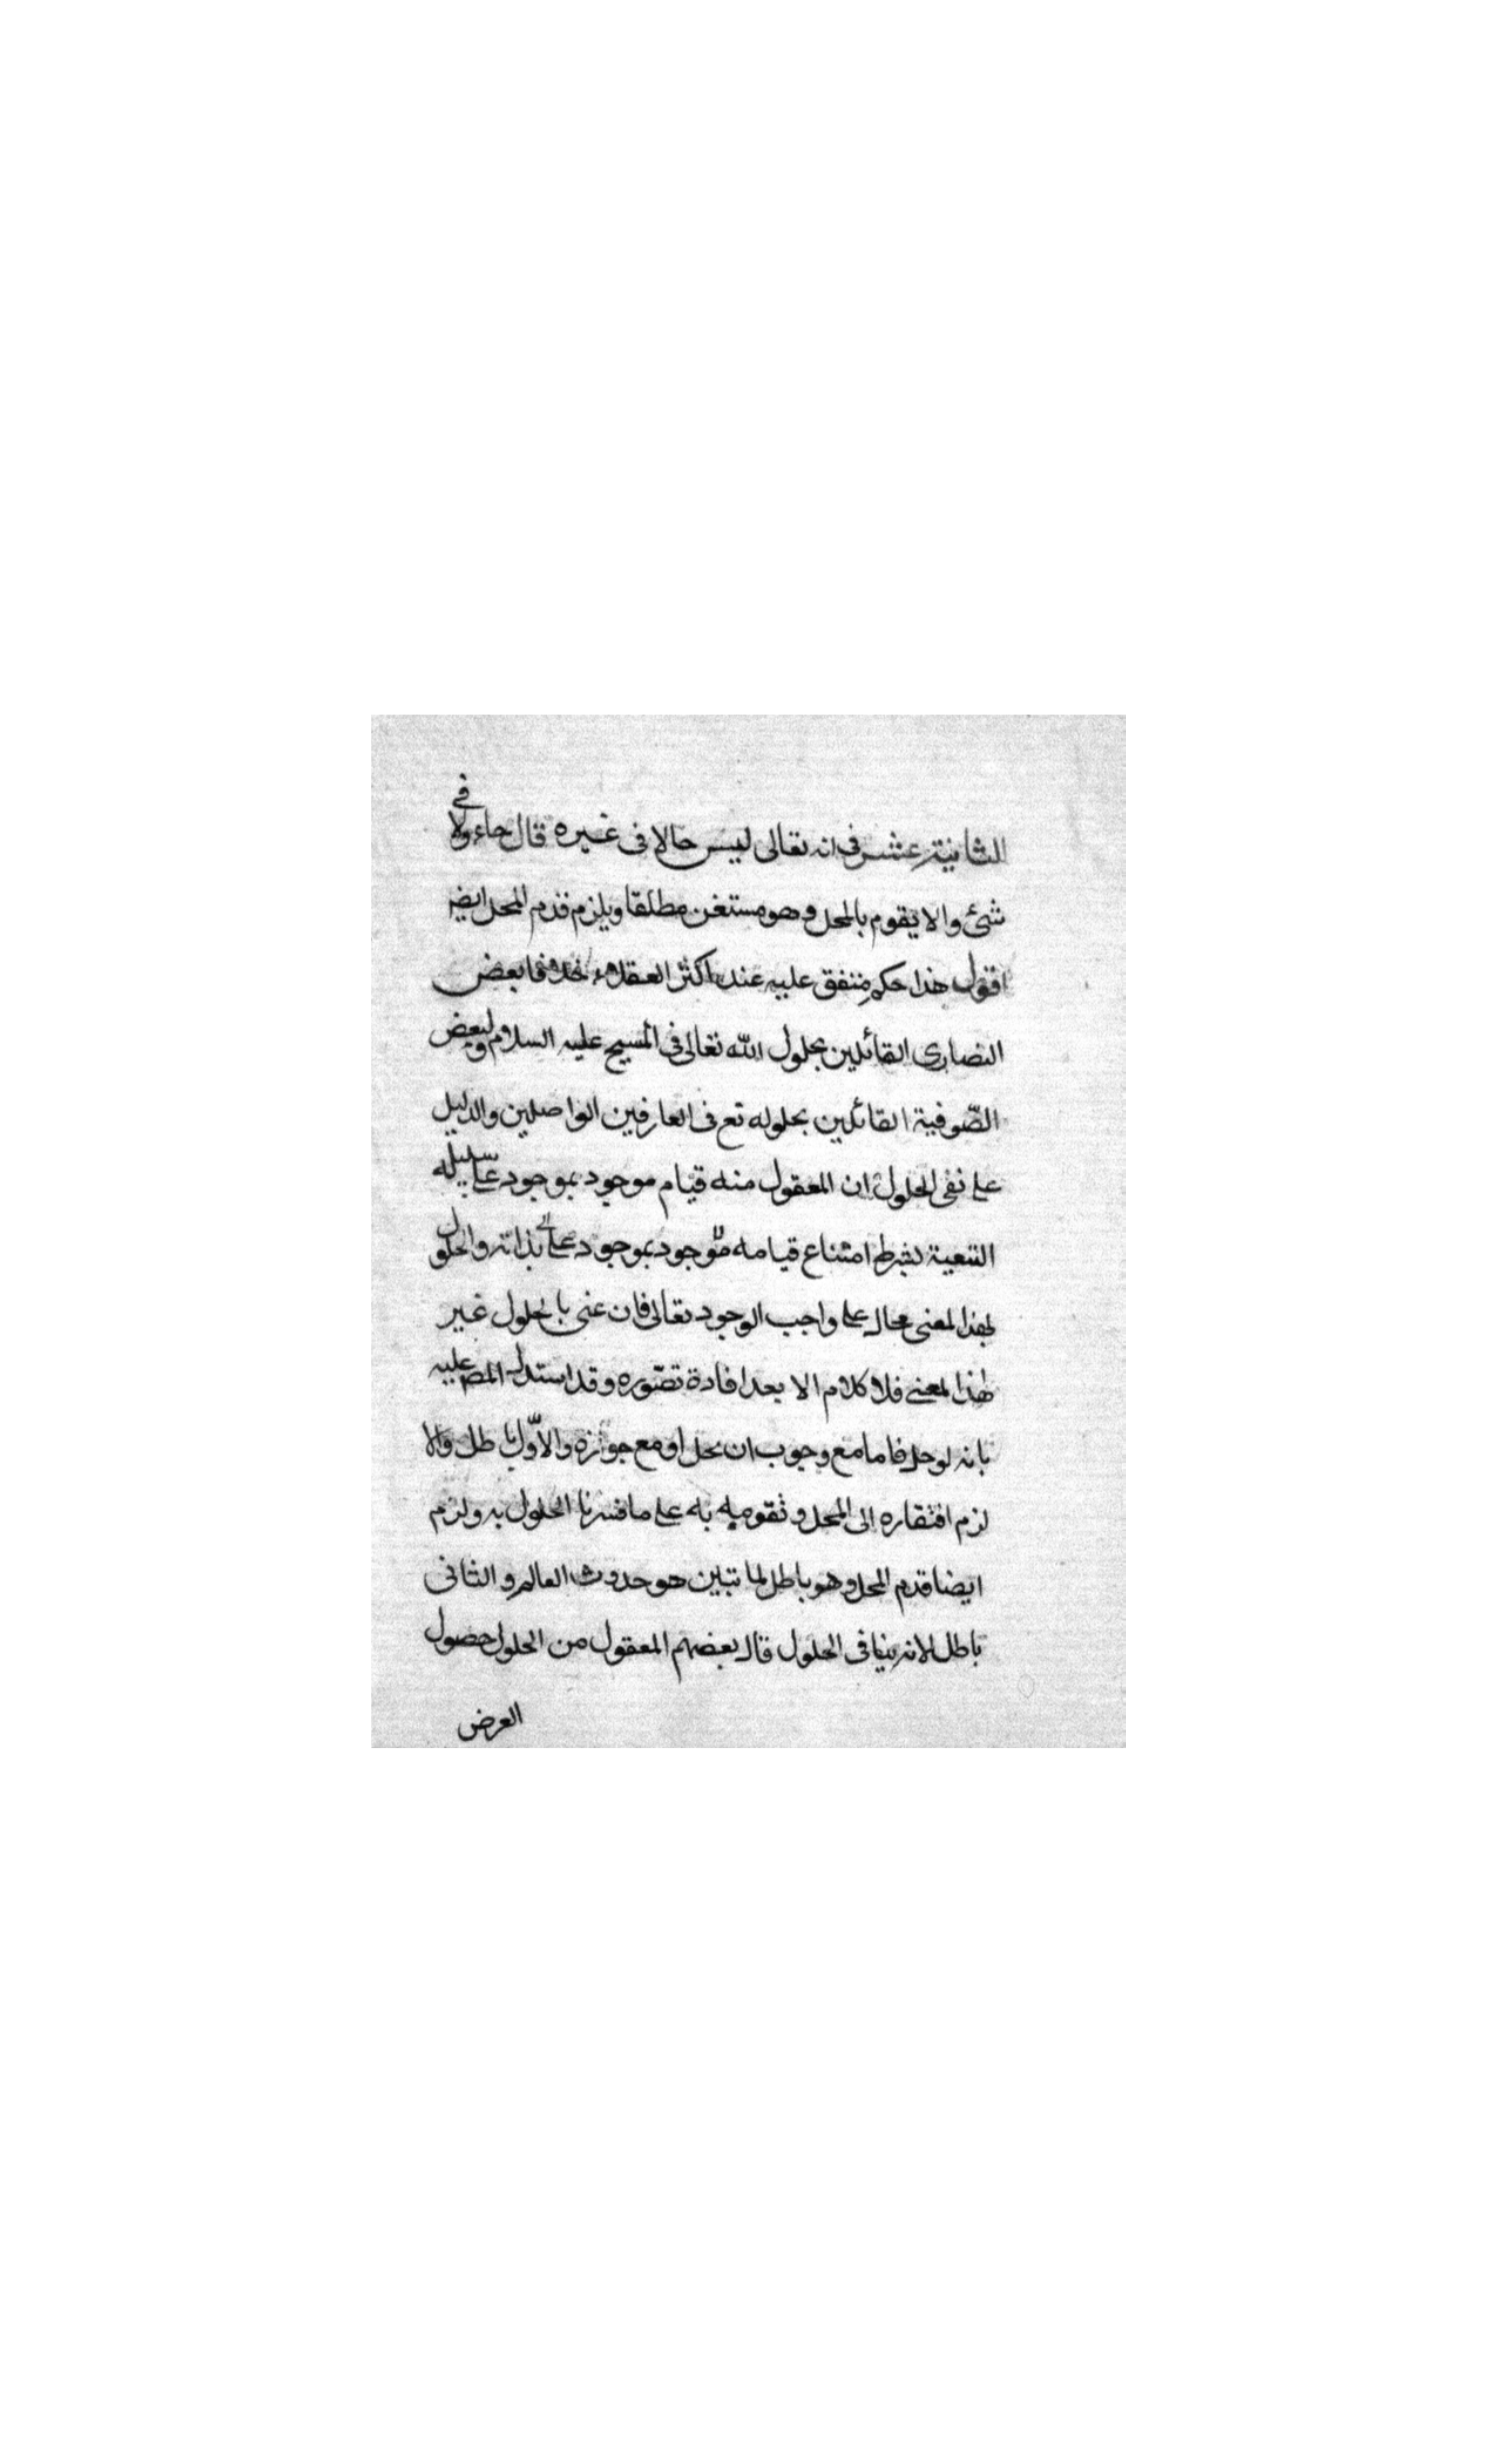 الثانية عشر فى انه تعالى ليس حالا فى غيره قال حاء ولا فى
شئ والا يقوم بالمحل وهو مستغن مطلقا ويلزم قدم المحل ايضا
اقول هذا حكم متفق عليه عند اكثر العقلاء خلافا بعض
النصارى القائلين بحلول الله تعالى فى المسيح عليه السلام ولبعض
الصّوفية القائلين بحلوله تع فى العارفين الواصلين والدليل
على نفى الحلول ان المعقول منه قيام موجود بموجود على سبيله
التبعية بشرط امتناع قيامه بذاته والحلول
بهذا المعنى محال على واجب الوجود تعالى فان عنى بالحلول غير
هذا المعنى فلا كلام الا بعد افادة تصّوره وقد استدل المص عليه
بانه لو حل فاما مع وجوب ان يحل او مع جوازه والاوّل باطل والا
لزم افتقاره الى المحل وتقوميه به على ما فسرنا الحلول به ولزم
ايضا قدم المحل وهو باطل لما تبين هو حدوث العالم والثانى
باطل لانه ينافى الحلول قال بعضهم المعقول من الحلول حصول
العرض